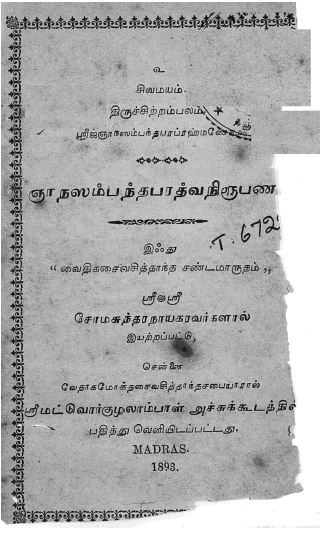 உ
சிவமயம்.
திருச்சிற்றம்பலம்
ஞாநஸம்பந்தபரத்வநிரூபண
இஃது
T. 672
“ வைதிகசைவசித்தாந்த சண்டமாருதம் ,,
ஸ்ரீலஸ்ரீ
சோமசுந்தரநாயகரவர்களால்
இயற்றப்பட்டு,
சென்னை
வேதாகமோக்தசைவசித்தாந்தசபையாரால்
ஸ்ரீமட்டுவார்குழலாம்பாள் அச்சுக்கூடத்தில்
பதித்து வெளியிடப்பட்டது.
MADRAS.
1893.